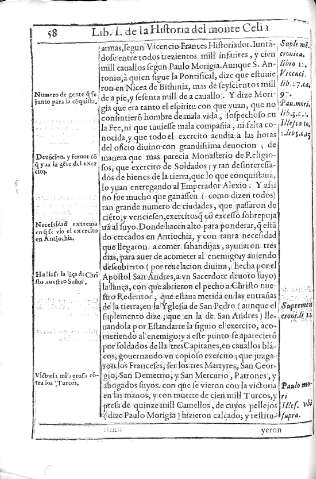 58
Lib. I. de la Historia del monte Celia
armas, segun Vicencio Frances Historiador. Juntá-
dose entre todos trezientos mill infantes, y cien
mill cauallos segun Paulo Morigia. Aunque S. An-
tonio, à quien sigue la Pontifical, dize que estuuie
ron en Nicea de Bithinia, mas de seyscientos mill
de a pie, y sesenta mill de a cauallo. Y dize Mori-
gia que era tanto el espiritu con que yuan, que no
consintierõ hombre de mala vida, sospechoso en
la Fee, ni que tuuiesse mala compañia, ni falta co-
nocida, y que todo el exercito acudia a las horas
del oficio diuino con grandissima deuocion; de
manera que mas parecia Monasterio de Religio-
sos, que exercito de Soldados; y tan desinteressa-
dos de bienes de la tierra, que lo que conquistauã,
lo yuan entregando al Emperador Alexio. Y assi
no fue mucho que ganassen (como dizen todos)
tan grande numero de ciudades, que passaron de
ciẽto; y venciessen, exercitos, q̃ cõ excesso sobrepuja
uã al suyo. Donde
alto para ponderar, q̃ està
do cercados en Antiochia, y con tanta necessidad
que llegaron a comer sabandijas, ayunaron tres
dias, para auer de acometer al enemigo: y aniendo
descubierto (por reuelacion diuina, hecha por el
Apostol San Andres, a vn Sacerdote deuoto suyo)
la lança, con que abrieron el pecho a Christo nue-
stro Redentor, que estaua metida en las entrañas
de la tierra; en la Yglesia de San Pedro (aunque el
suplemento dize, que en la de San Andres) lle-
uandola por Estandarte la siguio el exercito, aco-
metiendo al enemigo: y a este punto se aparecierõ
por soldados de la tres Capitanes, en cauallos blã-
cos, gouernando vn copioso exercito; que juzga-
ron los Franceses, ser los tres Martyres, San Geor-
gio, San Demetrio, y San Mercurio, Patrones, y
abogados suyos. con que se vieron con la victoria
en las manos, y con muerte de cien mill Turcos, y
presa de quinze mill Camellos, de cuyos pellejos
(dize Paulo Morigia) hizieron calçado; y restitu-
yeron
Numero de gente q̃ se
junto para la cõquista.
Deuocion, y feruor cõ
q̃ yua la gẽte del exer-
cito.
Necessidad extrema
en q̃ se vio el exercito
en Antiochia.
Hallase la lãça de Chri
sto nuestro Señor.
Victoria
cõtra los Turcos.
cronica.
libro
Vicenci.
lib.
Pau. mori.
Suplemen.
croni. li 12
Paulo mo-
ri
supra.